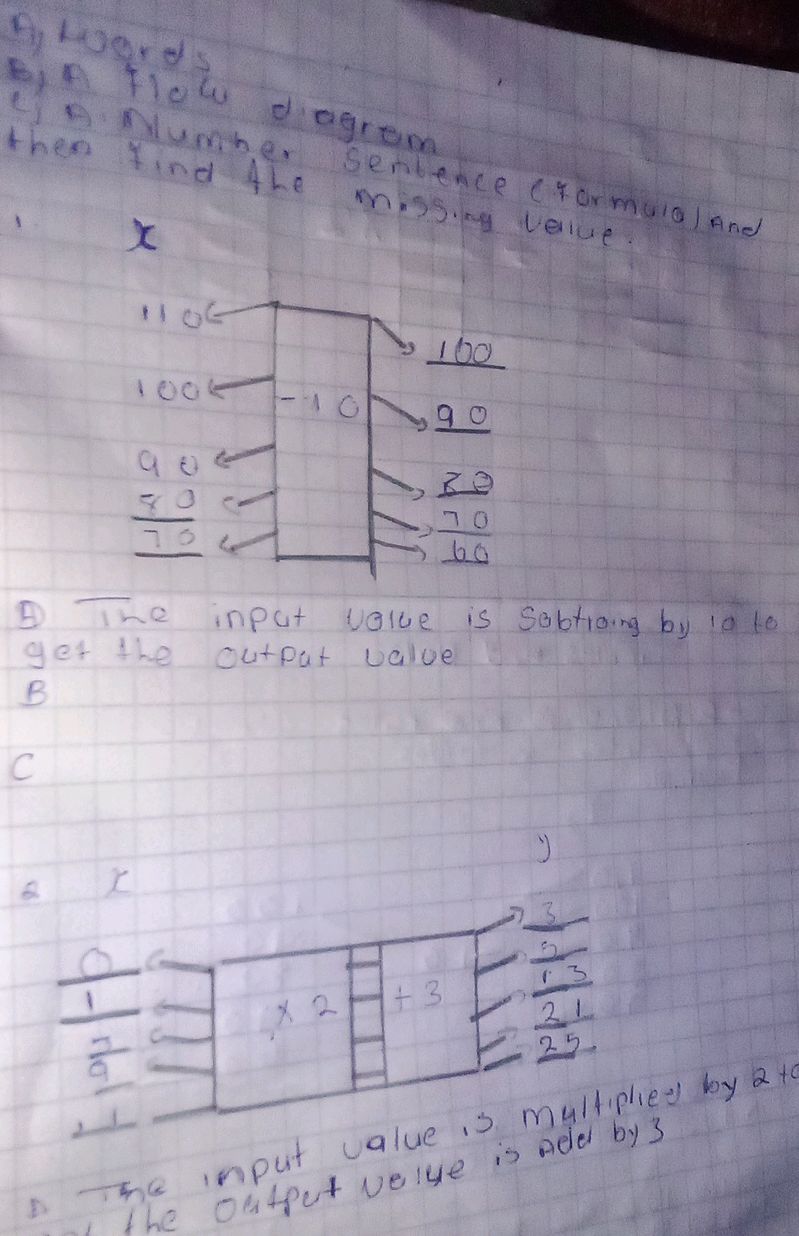 A, Words
B, A flow diagram
C, A Number Sentence (formula) And
then find the missing value.
1. x
110 100
100 -10 90
90 80
80 70
70 60
A The input value is Sabtraing by 10 to
get the output value
B
C
y
2 x
0 3
1 ×2 +3 5
5 13
9 21
11 25
A The input value is multiplied by 2 to
the output value is Add by 3